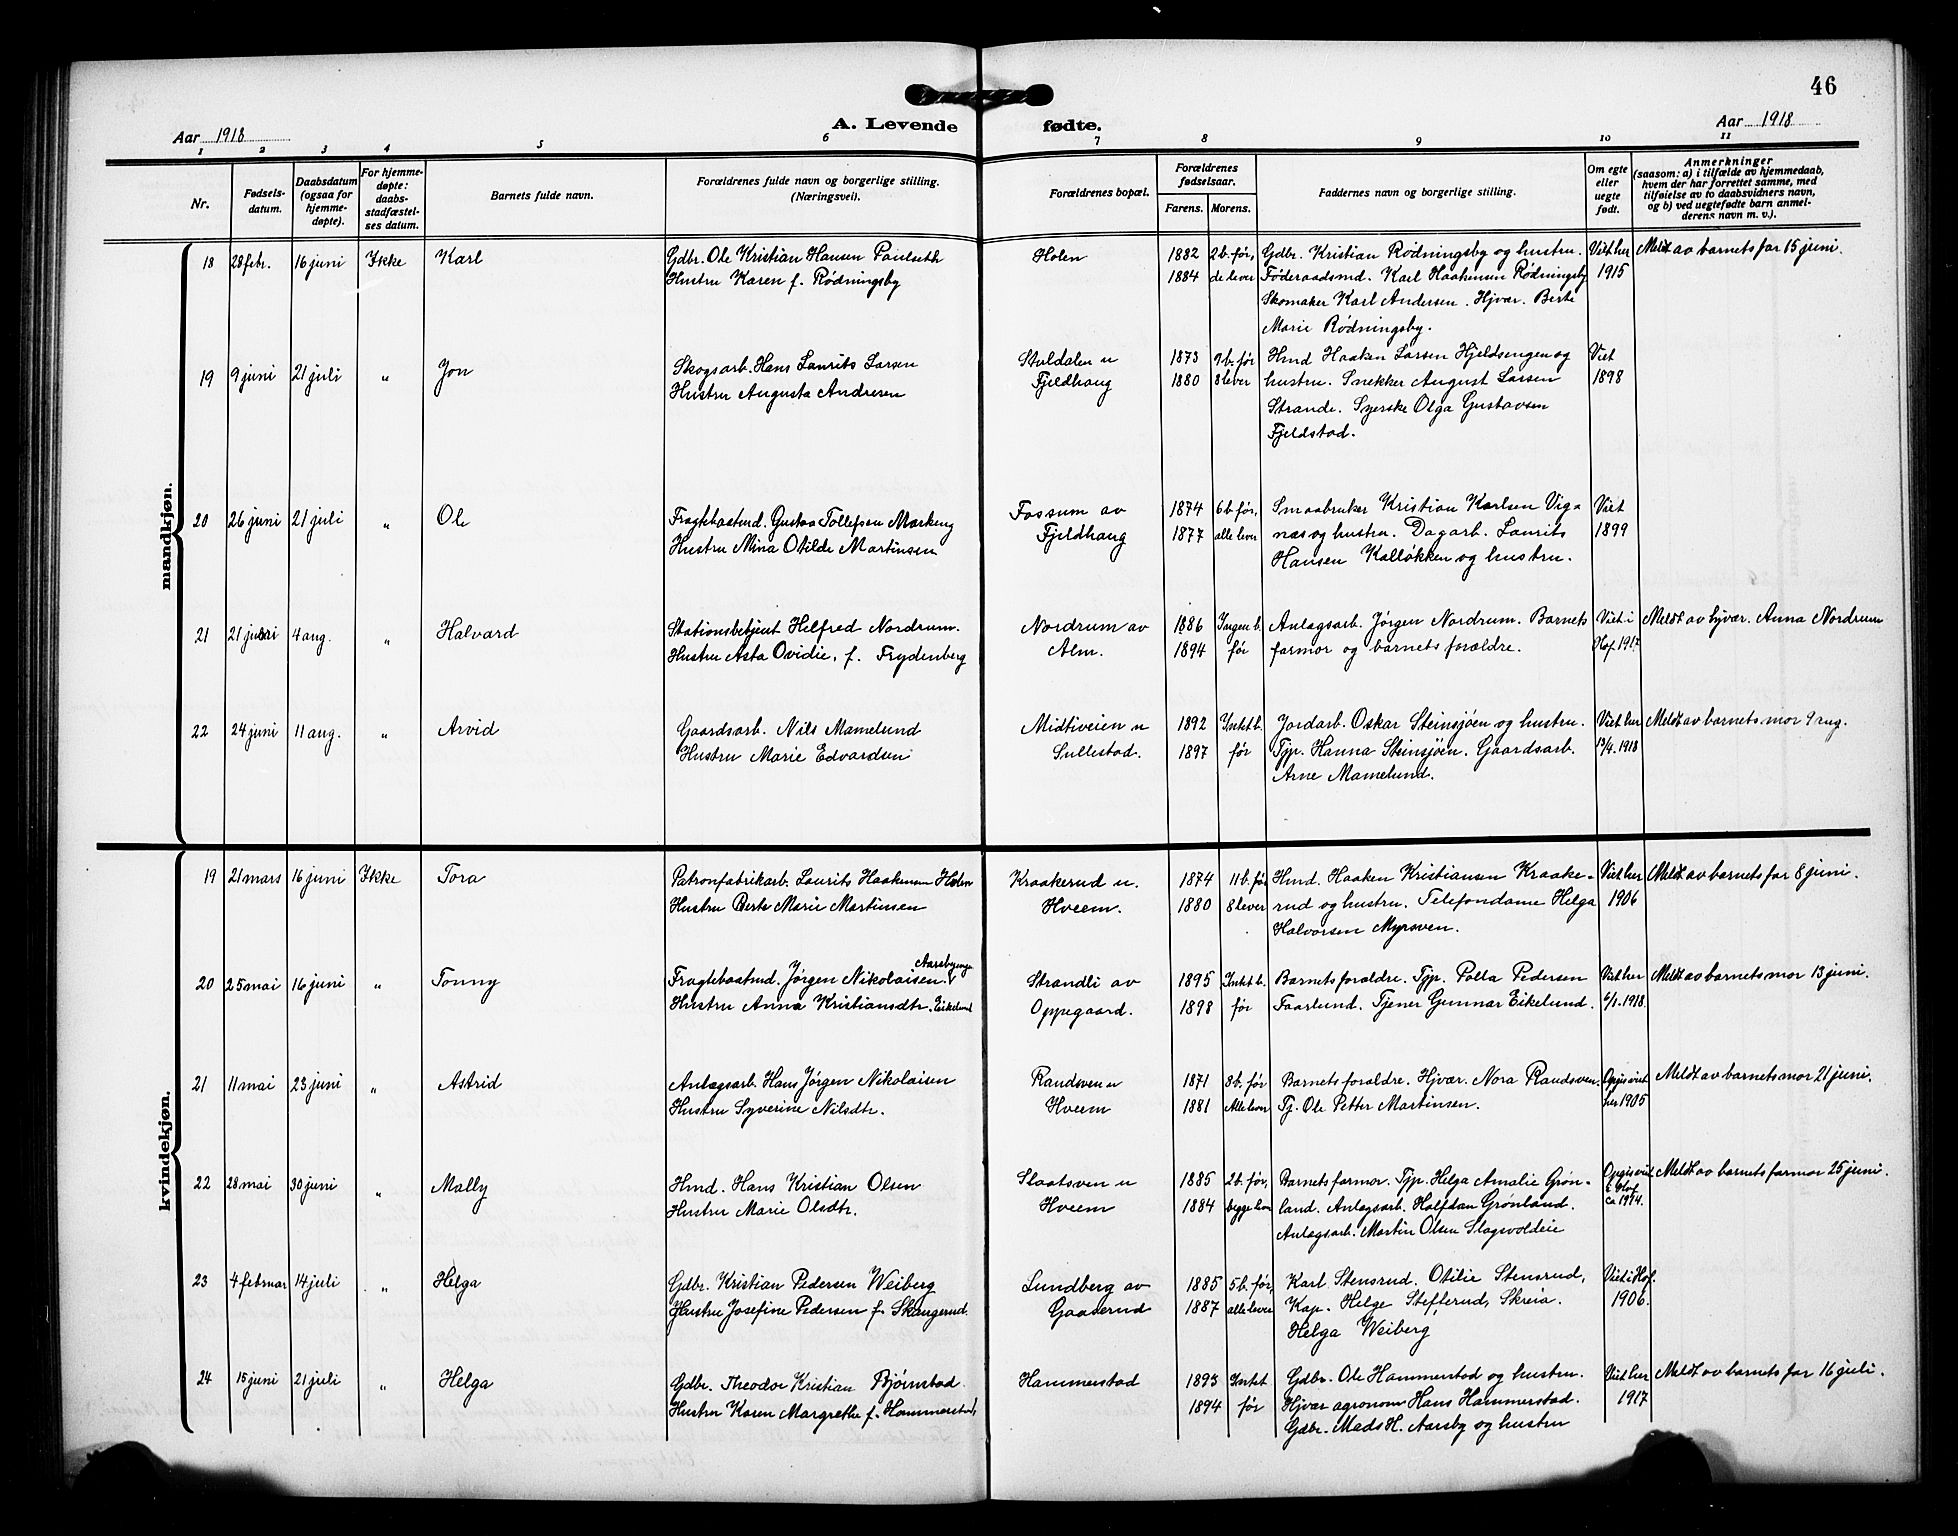 46
Aar 1918
A. Levende fødte.
Aar 1918
1 2 3 4 5 6 7 8 9 10 11
Nr.
Fødsels-
datum.
Daabsdatum
(ogsaa for
hjemme-
døpte).
For hjemme-
døpte:
daabs-
stadfæstel-
ses datum.
Barnets fulde navn.
Forældrenes fulde navn og borgerlige stilling.
(Næringsvei).
Forældrenes bopæl.
Forældrenes
fødselsaar.
Farens. Morens.
Faddernes navn og borgerlige stilling.
Om egte
eller
uegte
født.
Anmerkninger
(saasom: a) i tilfælde av hjemmedaab,
hvem der har forrettet samme, med
tilføielse av to daabsvidners navn,
og b) ved uegtefødte barn anmel-
derens navn m. v.).
mandkjøn.
18 28 febr. 16 juni Ikke Karl Gdbr. Ole Kristian Hansen Paulseth Holen 1882 2 b. før, Gdbr. Kristian Rødningsby og hustru. Viet her Meldt av barnets far 15 juni.
Hustru Karen f. Rødningsby 1884 de lever Føderaadsmd. Karl Haakensen Rødningsby 1915
Skomaker Karl Andersen. Hjvær. Berte
Marie Rødningsby.
19 9 juni 21 juli " Jon Skogsarb. Hans Laurits Larsen Stuldalen u 1873 9 b. før Hmd Haaken Larsen Hjeldsengen og Viet
Hustru Augusta Andresen Fjeldhaug 1880 8 lever hustru. Snekker August Larsen 1898
Strande. Syerske Olga Gustavsen
Fjeldstad.
20 26 juni 21 juli " Ole Fragtebaatmd. Gustav Tollefsen Markeng Fossum av 1874 6 b. før, Smaabruker Kristian Karlsen Vig- Viet
Hustru Mina Otilde Martinsen Fjeldhaug 1877 alle lever næs og hustru. Dagarb. Laurits 1899
Hansen Kalløkken og hustru.
21 21 juni 4 aug. " Halvard Stationsbetjent Helfred Nordrum. Nordrum av 1886 Ingen b. Anlægsarb. Jørgen Nordrum. Barnets Viet i Meldt av hjvær. Anna Nordrum
Hustru Asta Ovidie, f. Frydenberg Alm. 1894 før farmor og barnets forældre. Hof 1917
22 24 juni 11 aug. " Arvid Gaardsarb. Nils Mamelund Midtiveien u 1892 Intet b. Jordarb. Oskar Steinsjøen og hustru. Viet her Meldt av barnets mor 9 aug.
Hustru Marie Edvardsen Sullestad. 1897 før Tjp. Hanna Steinsjøen. Gaardsarb. /4. 1918
Arne Mamelund.
kvindekjøn.
19 21 mars 16 juni Ikke Tora Patronfabrikarb. Laurits Haakensen Holen Kraakerud u. 1874 11 b. før Hmd. Haaken Kristiansen Kraake- Viet her Meldt av barnets far 8 juni.
Hustru Berte Marie Martinsen Hveem. 1880 8 lever rud og hustru. Telefondame Helga 1906
Halvorsen Myrsven.
20 25 mai 16 juni " Tonny Fragtebaatmd. Jørgen Nikolaisen Strandli av 1895 Intet b. Barnets forældre. Tjp. Polla Pedersen Viet her Meldt av barnets mor 13 juni.
Hustru Anna Kristiansdtr. Eikelund Oppegaard. 1898 før Faarlund. Tjener Gunnar Eikelund. 6/1. 1918.
21 11 mai 23 juni " Astrid Anlægsarb. Hans Jørgen Nikolaisen Randsven u 1871 8 b. før Barnets forældre. Hjvær. Nora Randsven. Opgis viet Meldt av barnets mor 21 juni.
Hustru Syverine Nilsdtr. Hveem 1881 Alle lever Tj. Ole Petter Martinsen. her 1905
22 28 mai 30 juni " Mally Hmd. Hans Kristian Olsen Slaatsven u 1885 2 b. før, Barnets farmor. Tjp. Helga Amalie Grøn- Opgis viet Meldt av barnets farmor 25 juni.
Hustru Marie Olsdtr. Hveem 1884 begge lever land. Anlægsarb. Halfdan Grønland. i Hof ca 1914.
Anlægsarb. Martin Olsen Slagsvoldeie
23 4 februar 14 juli " Helga Gdbr. Kristian Pedersen Weiberg Lundberg av 1885 5 b. før, Karl Stensrud. Otilie Stensrud, Viet i Hof.
Hustru Josefine Pedersen f. Skaugerud. Gaaserud 1887 alle lever Kap. Helge Stefferud, Skreia. 1906.
Helga Weiberg
24 15 juni 21 juli " Helga Gdbr. Theodor Kristian Bjørnstad Hammerstad 1893 Intet Gdbr. Ole Hammerstad og hustru. Viet her Meldt av barnets far 16 juli.
Hustru Karen Margrethe f. Hammerstad, 1894 før Hjvær agronom Hans Hammerstad. 1917
Gdbr. Mads H. Aarsby og hustru